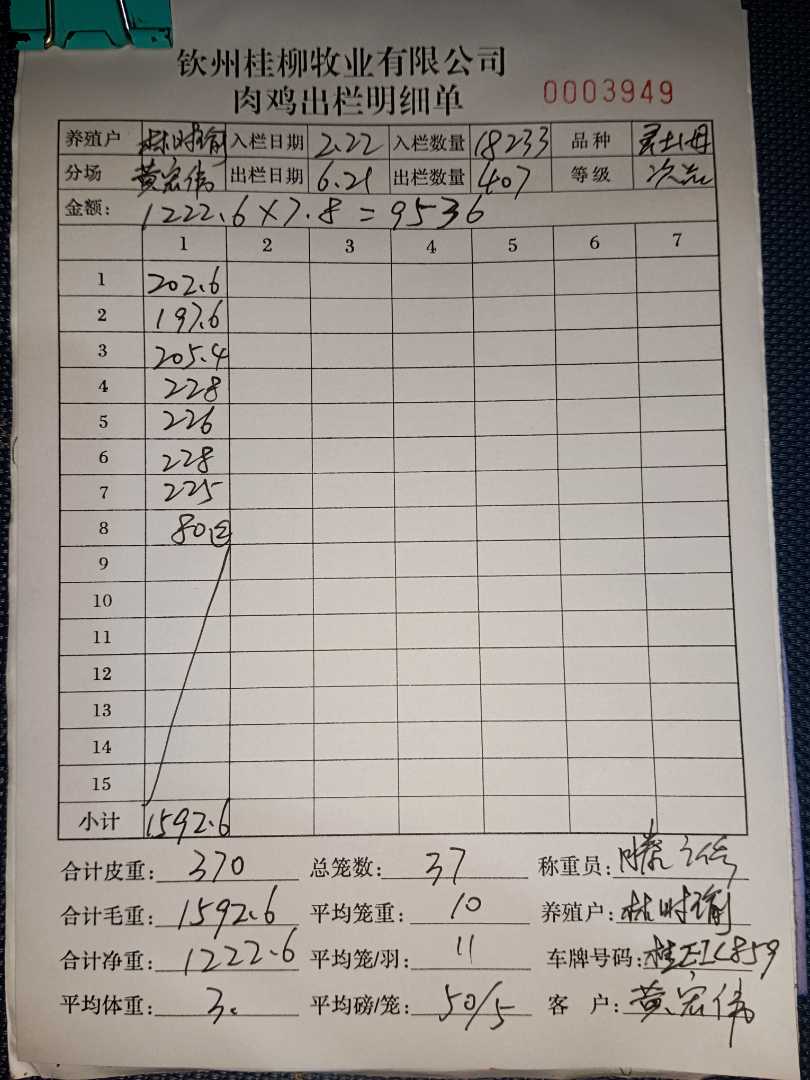 钦州桂柳牧业有限公司
肉鸡出栏明细单 0003949
养殖户 林时瑜 入栏日期 2.22 入栏数量 18233 品种
分场 黄宏伟 出栏日期 6.21 出栏数量 407 等级 次品
金额: 1222.6×7.8=9536
1 2 3 4 5 6 7
1 202.6
2 197.6
3 205.4
4 228
5 226
6 228
7 225
8 80
9
10
11
12
13
14
15
小计 1592.6
合计皮重: 370 总笼数: 37 称重员:
合计毛重: 1592.6 平均笼重: 10 养殖户: 林时瑜
合计净重: 1222.6 平均笼/羽: 11 车牌号码:
平均体重: 3. 平均磅/笼: 50/5 客 户: 黄宏伟